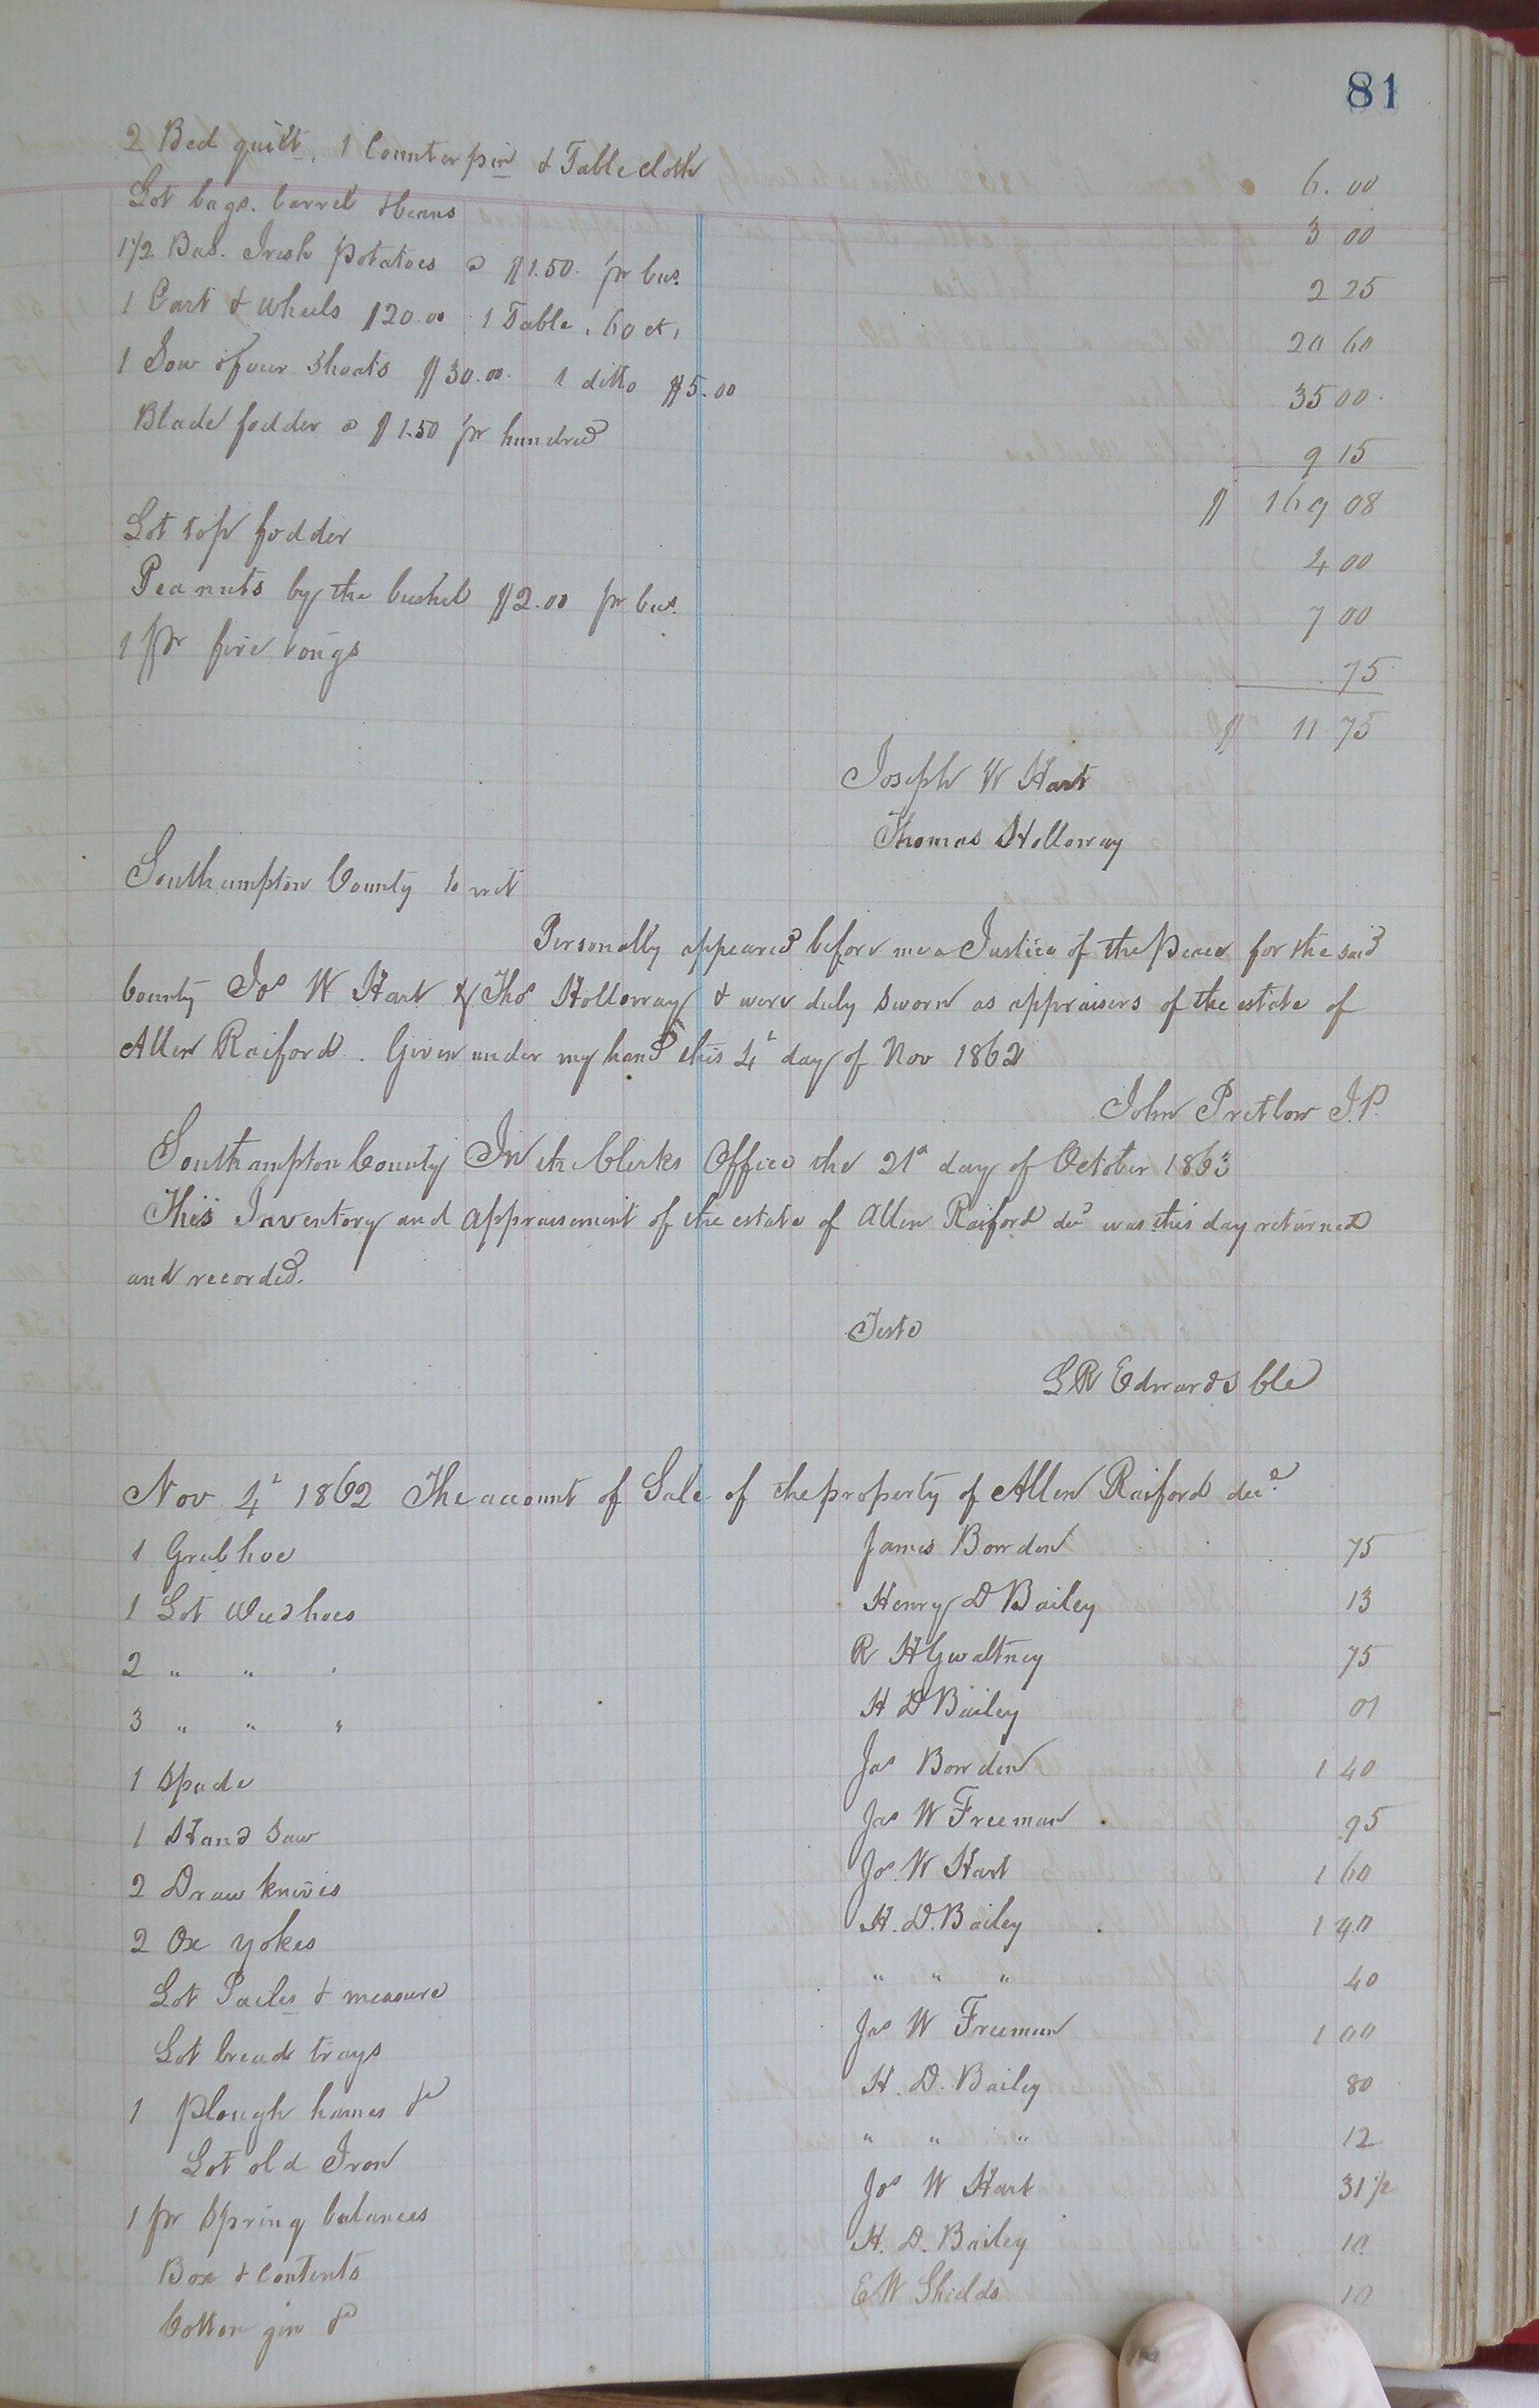 81
2 Bed quilt, 1 Counterpin & Table cloth 6.00
Lot bags. barrel & beans 3 00
1 1/2 Bus. Irish Potatoes @ $1.50 pr bus. 2 25
1 Cart & wheels $20.00 1 Table, 60 ct, 20 60
1 Sow & four Shoats $30.00. 1 ditto $5.00 35 00
Blade fodder @ $1.50 pr hundred 9 15
$ 169 08
Lot top fodder 4 00
Peanuts by the bushel $2.00 pr bus. 7 00
1 pr fire tongs 75
$ 11 75
Joseph W Hart
Thomas Holloway
Southampton County to wit
Personally appeared before me a Justice of the Peace for the said
County Jos W Hart & Thos Holloway & were duly sworn as appraisers of the estate of
Allen Raiford. Given under my hand this 4th day of Nov 1862
John Pretlow J.P.
Southampton County In the Clerks Office the 21st day of October 1863
This Inventory and appraisement of the estate of Allen Raiford decd was this day returned
and recorded.
Teste
L R Edwards Clk
Nov 4th 1862 The account of Sale of the property of Allen Raiford decd.
1 Grub hoe James Bowden 75
1 Lot Weed hoes Henry D Bailey 13
2 " " " R H Gwaltney 75
3 " " " H D Bailey 01
1 Spade Jas Bowden 1 40
1 Hand Saw Jas W Freeman 95
2 Draw knives Jos. W Hart 1 60
2 Ox yokes H. D. Bailey 1 40
Lot Pailes & measure " " " 40
Lot bread trays Jas W Freeman 1 00
1 Plough hames & H. D. Bailey 80
Lot old Iron " " " 12
1 pr Spring balances Jos W Hart 31 1/2
Box & contents H. D. Bailey 10
Cotton gin & E W Shields 10